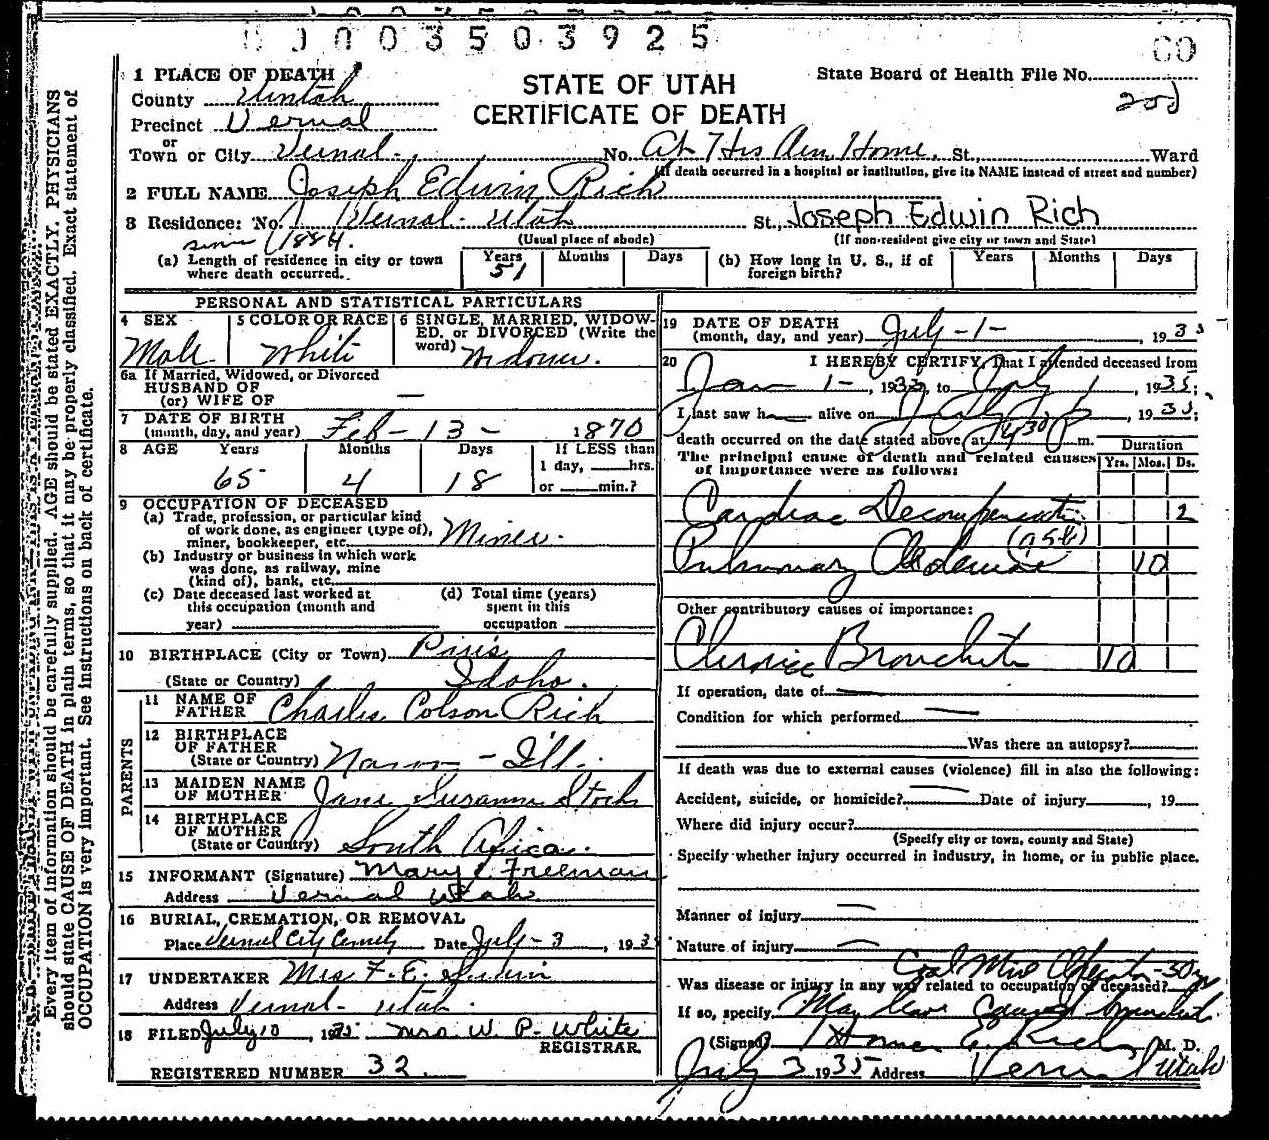 0 0 0 3 5 0 3 9 2 5
60
1 PLACE OF DEATH
STATE OF UTAH
CERTIFICATE OF DEATH
State Board of Health File No.
County Uintah
Precinct Vernal
or
Town or City Vernal. No. At His Own Home. St., Ward
(If death occurred in a hospital or institution, give its NAME instead of street and number)
2 FULL NAME Joseph Edwin Rich
3 Residence: No. Vernal - Utah St., Joseph Edwin Rich
since 1884.
(Usual place of abode) (If non-resident give city or town and State)
(a) Length of residence in city or town where death occurred. Years 51 Months Days
(b) How long in U. S., if of foreign birth? Years Months Days
PERSONAL AND STATISTICAL PARTICULARS
4 SEX Male
5 COLOR OR RACE White
6 SINGLE, MARRIED, WIDOWED, or DIVORCED (Write the word)
6a If Married, Widowed, or Divorced
HUSBAND OF
(or) WIFE OF —
7 DATE OF BIRTH
(month, day, and year) Feb - 13 - 1870
8 AGE Years 65 Months 4 Days 18
If LESS than
1 day, hrs.
or min.?
9 OCCUPATION OF DECEASED
(a) Trade, profession, or particular kind
of work done, as engineer (type of),
miner, bookkeeper, etc. Miner.
(b) Industry or business in which work
was done, as railway, mine
(kind of), bank, etc.
(c) Date deceased last worked at
this occupation (month and
year)
(d) Total time (years)
spent in this
occupation
10 BIRTHPLACE (City or Town) Paris
(State or Country) Idaho.
PARENTS
11 NAME OF
FATHER Charles Colson Rich
12 BIRTHPLACE
OF FATHER
(State or Country) - Ill.
13 MAIDEN NAME
OF MOTHER Jane Susanna Stock
14 BIRTHPLACE
OF MOTHER
(State or Country) South Africa.
15 INFORMANT (Signature) Mary E Freeman
Address Vernal Utah.
16 BURIAL, CREMATION, OR REMOVAL
Place Vernal City Cemety Date July - 3, 193
17 UNDERTAKER Mrs F. E.
Address Vernal - Utah.
18 FILED July 10, 1935 Mrs W. P. White
REGISTRAR.
REGISTERED NUMBER 32
19 DATE OF DEATH
(month, day, and year) July - 1 - , 1935
20 I HEREBY CERTIFY, That I attended deceased from
Jan 1 - , 1933, to July 1, 1935;
I last saw h alive on July 1, 1935;
death occurred on the date stated above, at 430 P m.
The principal cause of death and related causes
of importance were as follows:
Duration
Yrs. Mos. Ds.
Cardiac Decompensation 2
(95b)
Pulmonary Oedemae 10
Other contributory causes of importance:
Chronic Bronchitis 10
If operation, date of —
Condition for which performed —
Was there an autopsy?
If death was due to external causes (violence) fill in also the following:
Accident, suicide, or homicide? — Date of injury , 19
Where did injury occur?
(Specify city or town, county and State)
Specify whether injury occurred in industry, in home, or in public place.
Manner of injury —
Nature of injury —
Coal Mine Operator - 30 yr
Was disease or injury in any way related to occupation of deceased?
If so, specify May have caused bronchitis
(Signed) Homer E. Rich M. D.
July 3 1935 Address Vernal Utah
Every item of information should be carefully supplied. AGE should be stated EXACTLY. PHYSICIANS
should state CAUSE OF DEATH in plain terms, so that it may be properly classified. Exact statement of
OCCUPATION is very important. See instructions on back of certificate.